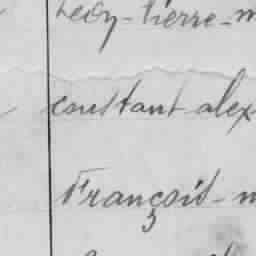 Leon-Pierre-m
constant alex
François-m